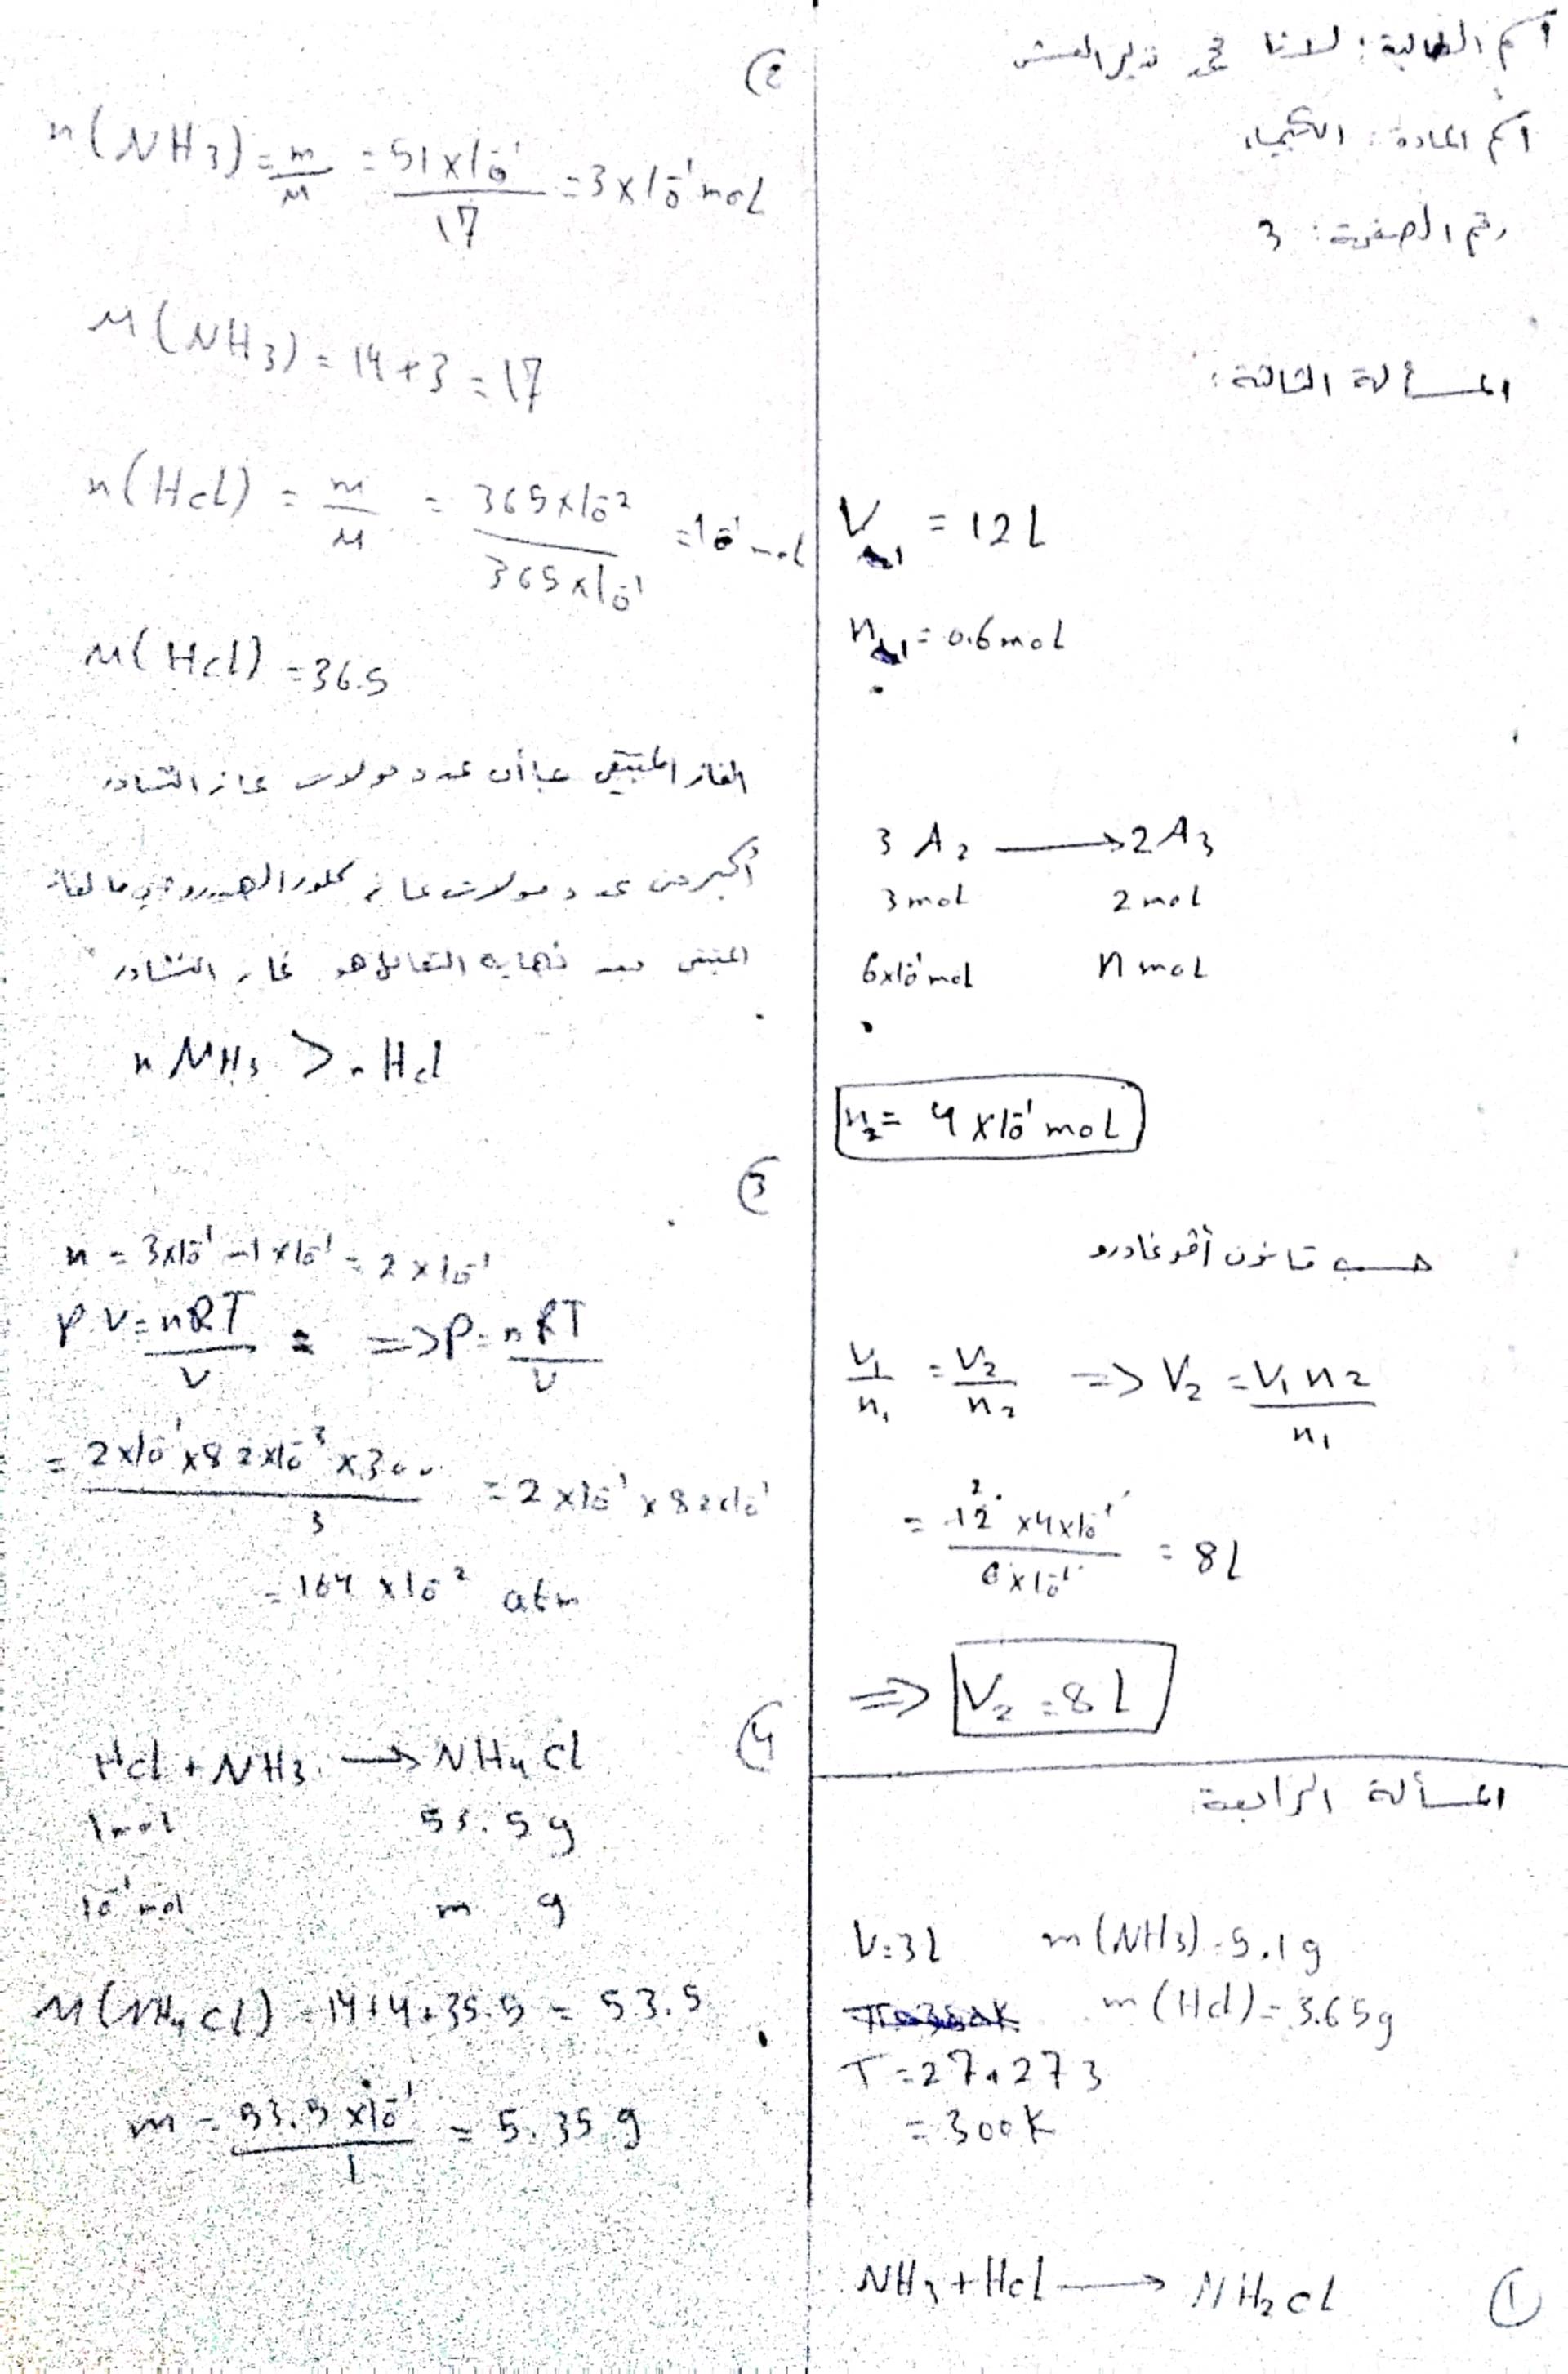 اسم الطالبة: لانا محمد نذير العش
اسم المادة: الكيمياء
رقم الصفحة: 3
المسألة الثالثة:
V₁ = 12 L
n₁ = 0.6 mol
3 A₂ ⟶ 2 A₃
3 mol 2 mol
6x10⁻¹ mol n mol
n₂ = 4 x10⁻¹ mol
حسب قانون أفوغادرو
V₁/n₁ = V₂/n₂ => V₂ = V₁ n₂/n₁
= 12 x4x10⁻¹/6x10⁻¹ = 8 L
=> V₂ = 8 L
المسألة الرابعة:
V = 3 L m (NH₃) = 5.1 g
m (Hcl) = 3.65 g
T = 27+273
= 300 K
① NH₃ + Hcl ⟶ NH₂ cl
②
n (NH₃) = m/M = 51x10⁻¹/17 = 3 x10⁻¹ mol
M (NH₃) = 14+3 = 17
n (Hcl) = m/M = 365x10⁻²/365x10⁻¹ = 10⁻¹ mol
M (Hcl) = 36.5
الغاز المتبقي بما أن عدد مولات غاز النشادر
أكبر من عدد مولات غاز كلور الهيدروجين فالغاز
المتبقي بعد نهاية التفاعل هو غاز النشادر
n NH₃ > n Hcl
③
n = 3x10⁻¹ - 1x10⁻¹ = 2 x10⁻¹
P.V = nRT/V = => P = nRT/V
= 2x10⁻¹x82x10⁻³x300/3 = 2x10⁻¹x82x10⁻¹
= 164 x10⁻² atm
④
Hcl + NH₃ ⟶ NH₄ cl
1 mol 53.5 g
10⁻¹ mol m g
M (NH₄ cl) = 14+4+35.5 = 53.5
m = 53.5 x10⁻¹/1 = 5.35 g